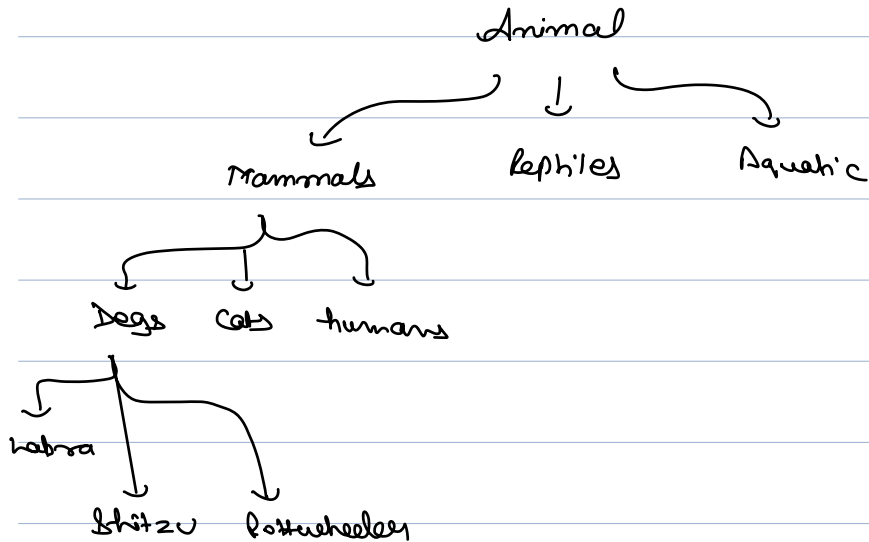 Animal
Mammals Reptiles Aquatic
Dogs Cats humans
Labra
Shitzu Rottwheeler